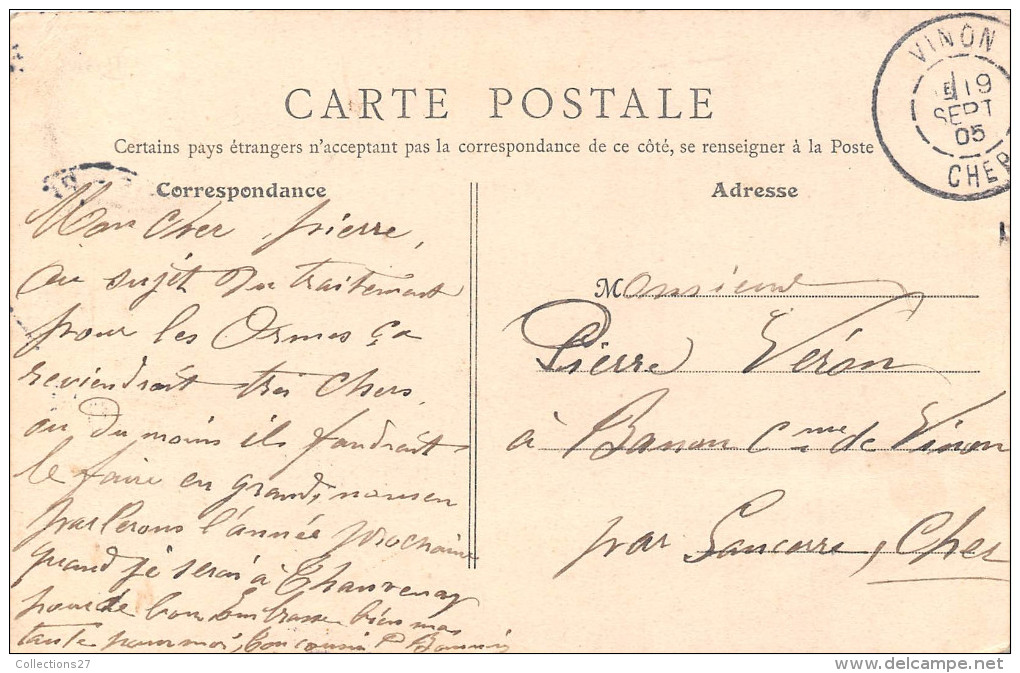 VINON
19
SEPT
05
CHER
CARTE POSTALE
Certains pays étrangers n'acceptant pas la correspondance de ce côté, se renseigner à la Poste
Correspondance
Mon cher pierre,
au sujet du traitement
pour les Ormes ça
reviendrait très chers,
ou du moins ils faudrait
le faire en grand, nous en
parlerons l'année prochaine
quand je serai à Chauvenay
pour de bon. Embrasse bien ma
tante pour moi, ton cousin P
Adresse
Monsieur
Pierre Véron
à Banon Cme de Vinon
par Sancerre, Cher
Collections27
delcampe.net